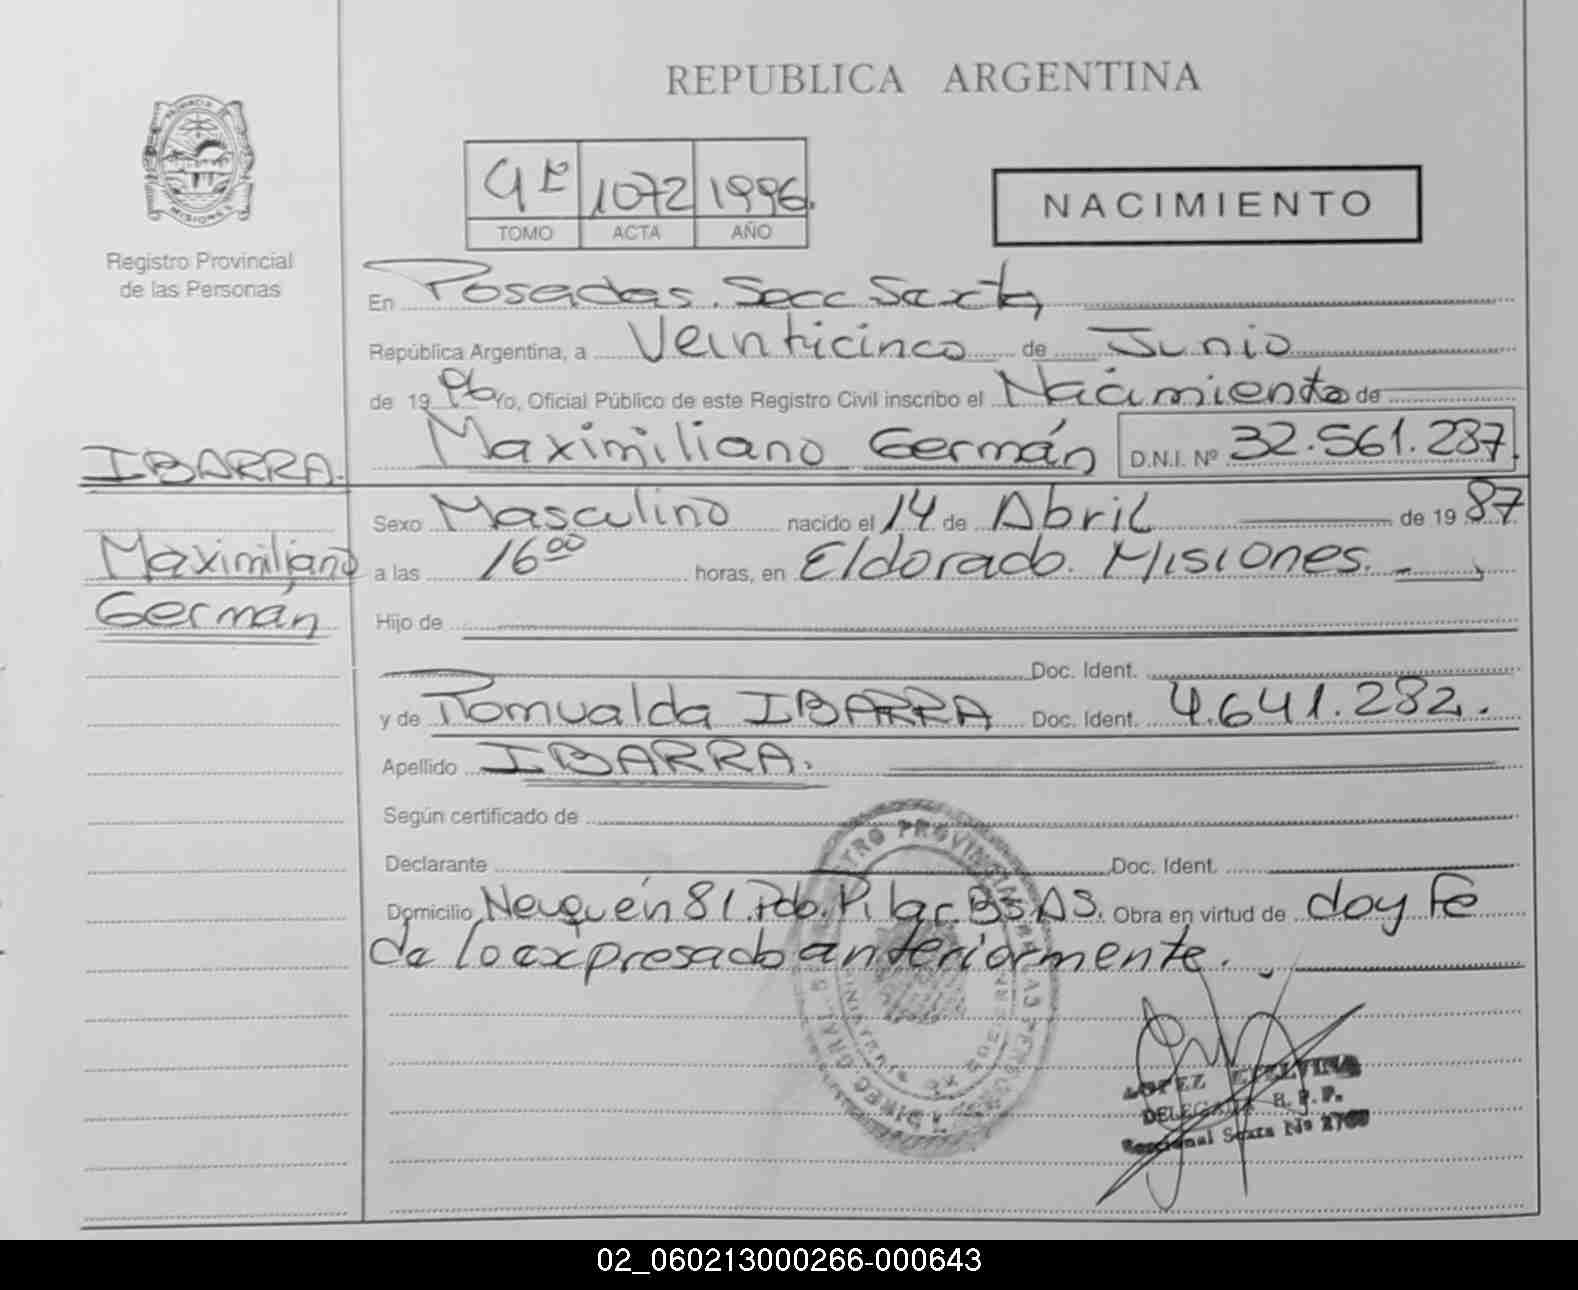 REPUBLICA ARGENTINA
PROVINCIA DE MISIONES
Registro Provincial
de las Personas
1072 1996.
TOMO ACTA AÑO
NACIMIENTO
En Posadas. Secc Sexta
República Argentina, a Veinticinco de Junio
de 19 96 Yo, Oficial Público de este Registro Civil inscribo el Nacimiento de
Maximiliano Germán D.N.I. Nº 32.561.237
IBARRA.
Maximiliano
Germán
Sexo Masculino nacido el 14 de Abril de 19 87
a las 16 00 horas, en Eldorado. Misiones.
Hijo de
Doc. Ident.
y de Romualda IBARRA Doc. Ident. 4.641.282.
Apellido IBARRA.
Según certificado de
Declarante Doc. Ident.
Domicilio Neuquén 81. Pdo. Pilar. BS AS. Obra en virtud de doy Fe
de lo expresado anteriormente.
LOPEZ ETELVINA
DELEGADA R. P. P.
Seccional Sexta Nº
02_060213000266-000643